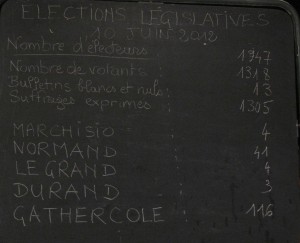 ELECTIONS LÉGISLATIVES
10 JUIN 2012
Nombre d'électeurs : 1947
Nombre de votants : 1318
Bulletins blancs et nuls : 13
Suffrages exprimés : 1305
MARCHISIO : 4
NORMAND : 41
LE GRAND : 4
DURAND : 3
GATHERCOLE : 116